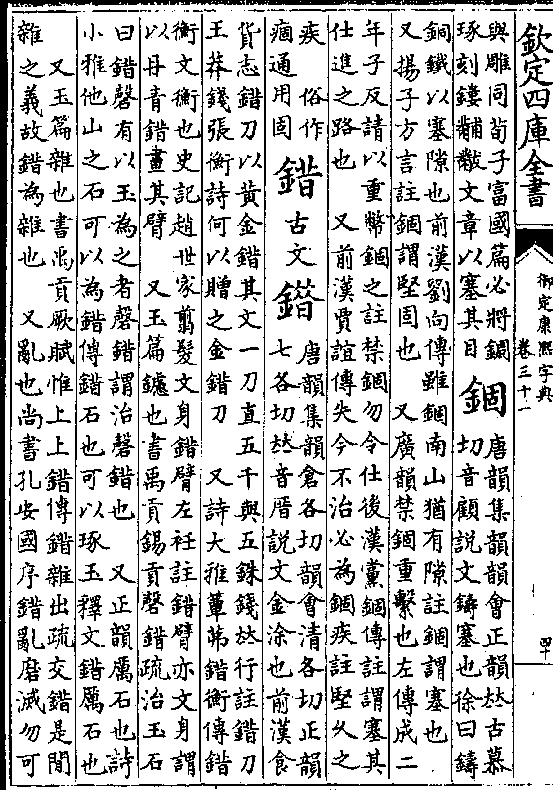 欽定四庫全書
御定康熙字典
卷三十一
四十
與雕同荀子富國篇必將錭
琢刻鏤黼黻文章以塞其目
錮
唐韻集韻韻會正韻𠀤古慕
切音顧說文鑄塞也徐曰鑄
銅鐵以塞隙也前漢劉向傳雖錮南山猶有隙註錮謂塞也
又揚子方言註錮謂堅固也 又廣韻禁錮重繫也左傳成二
年子反請以重幣錮之註禁錮勿令仕後漢黨錮傳註謂塞其
仕進之路也 又前漢賈誼傳失今不治必為錮疾註堅久之
疾 俗作
痼通用固
錯
古文
鍇
唐韻集韻倉各切韻會清各切正韻
七各切𠀤音厝說文金涂也前漢食
貨志錯刀以黃金錯其文一刀直五千與五銖錢𠀤行註錯刀
王莽錢張衡詩何以贈之金錯刀 又詩大雅簟茀錯衡傳錯
衡文衡也史記趙世家翦髮文身錯臂左衽註錯臂亦文身謂
以丹青錯畫其臂 又玉篇鑢也書禹貢錫貢磬錯疏治玉石
曰錯磬有以玉為之者磬錯謂治磬錯也 又正韻厲石也詩
小雅他山之石可以為錯傳錯石也可以琢玉釋文錯厲石也
又玉篇雜也書禹貢厥賦惟上上錯傳錯雜出疏交錯是間
雜之義故錯為雜也 又亂也尚書孔安國序錯亂磨滅勿可